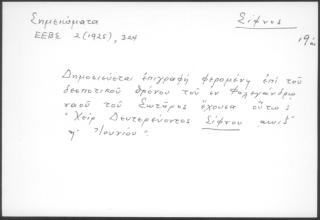 Σημειώματα
Σίφνος
ΕΕΒΣ 2 (1925), 324
19
Δημοσιεύεται ἐπιγραφή φερομένη ἐπί τοῦ
δεσποτικοῦ θρόνου τοῦ ἐν Φολεγάνδρῳ
ναοῦ τοῦ Σωτῆρος ἔχουσα οὕτω:
"Χείρ Δευτερεύοντος Σίφνου
Ἰουνίου".